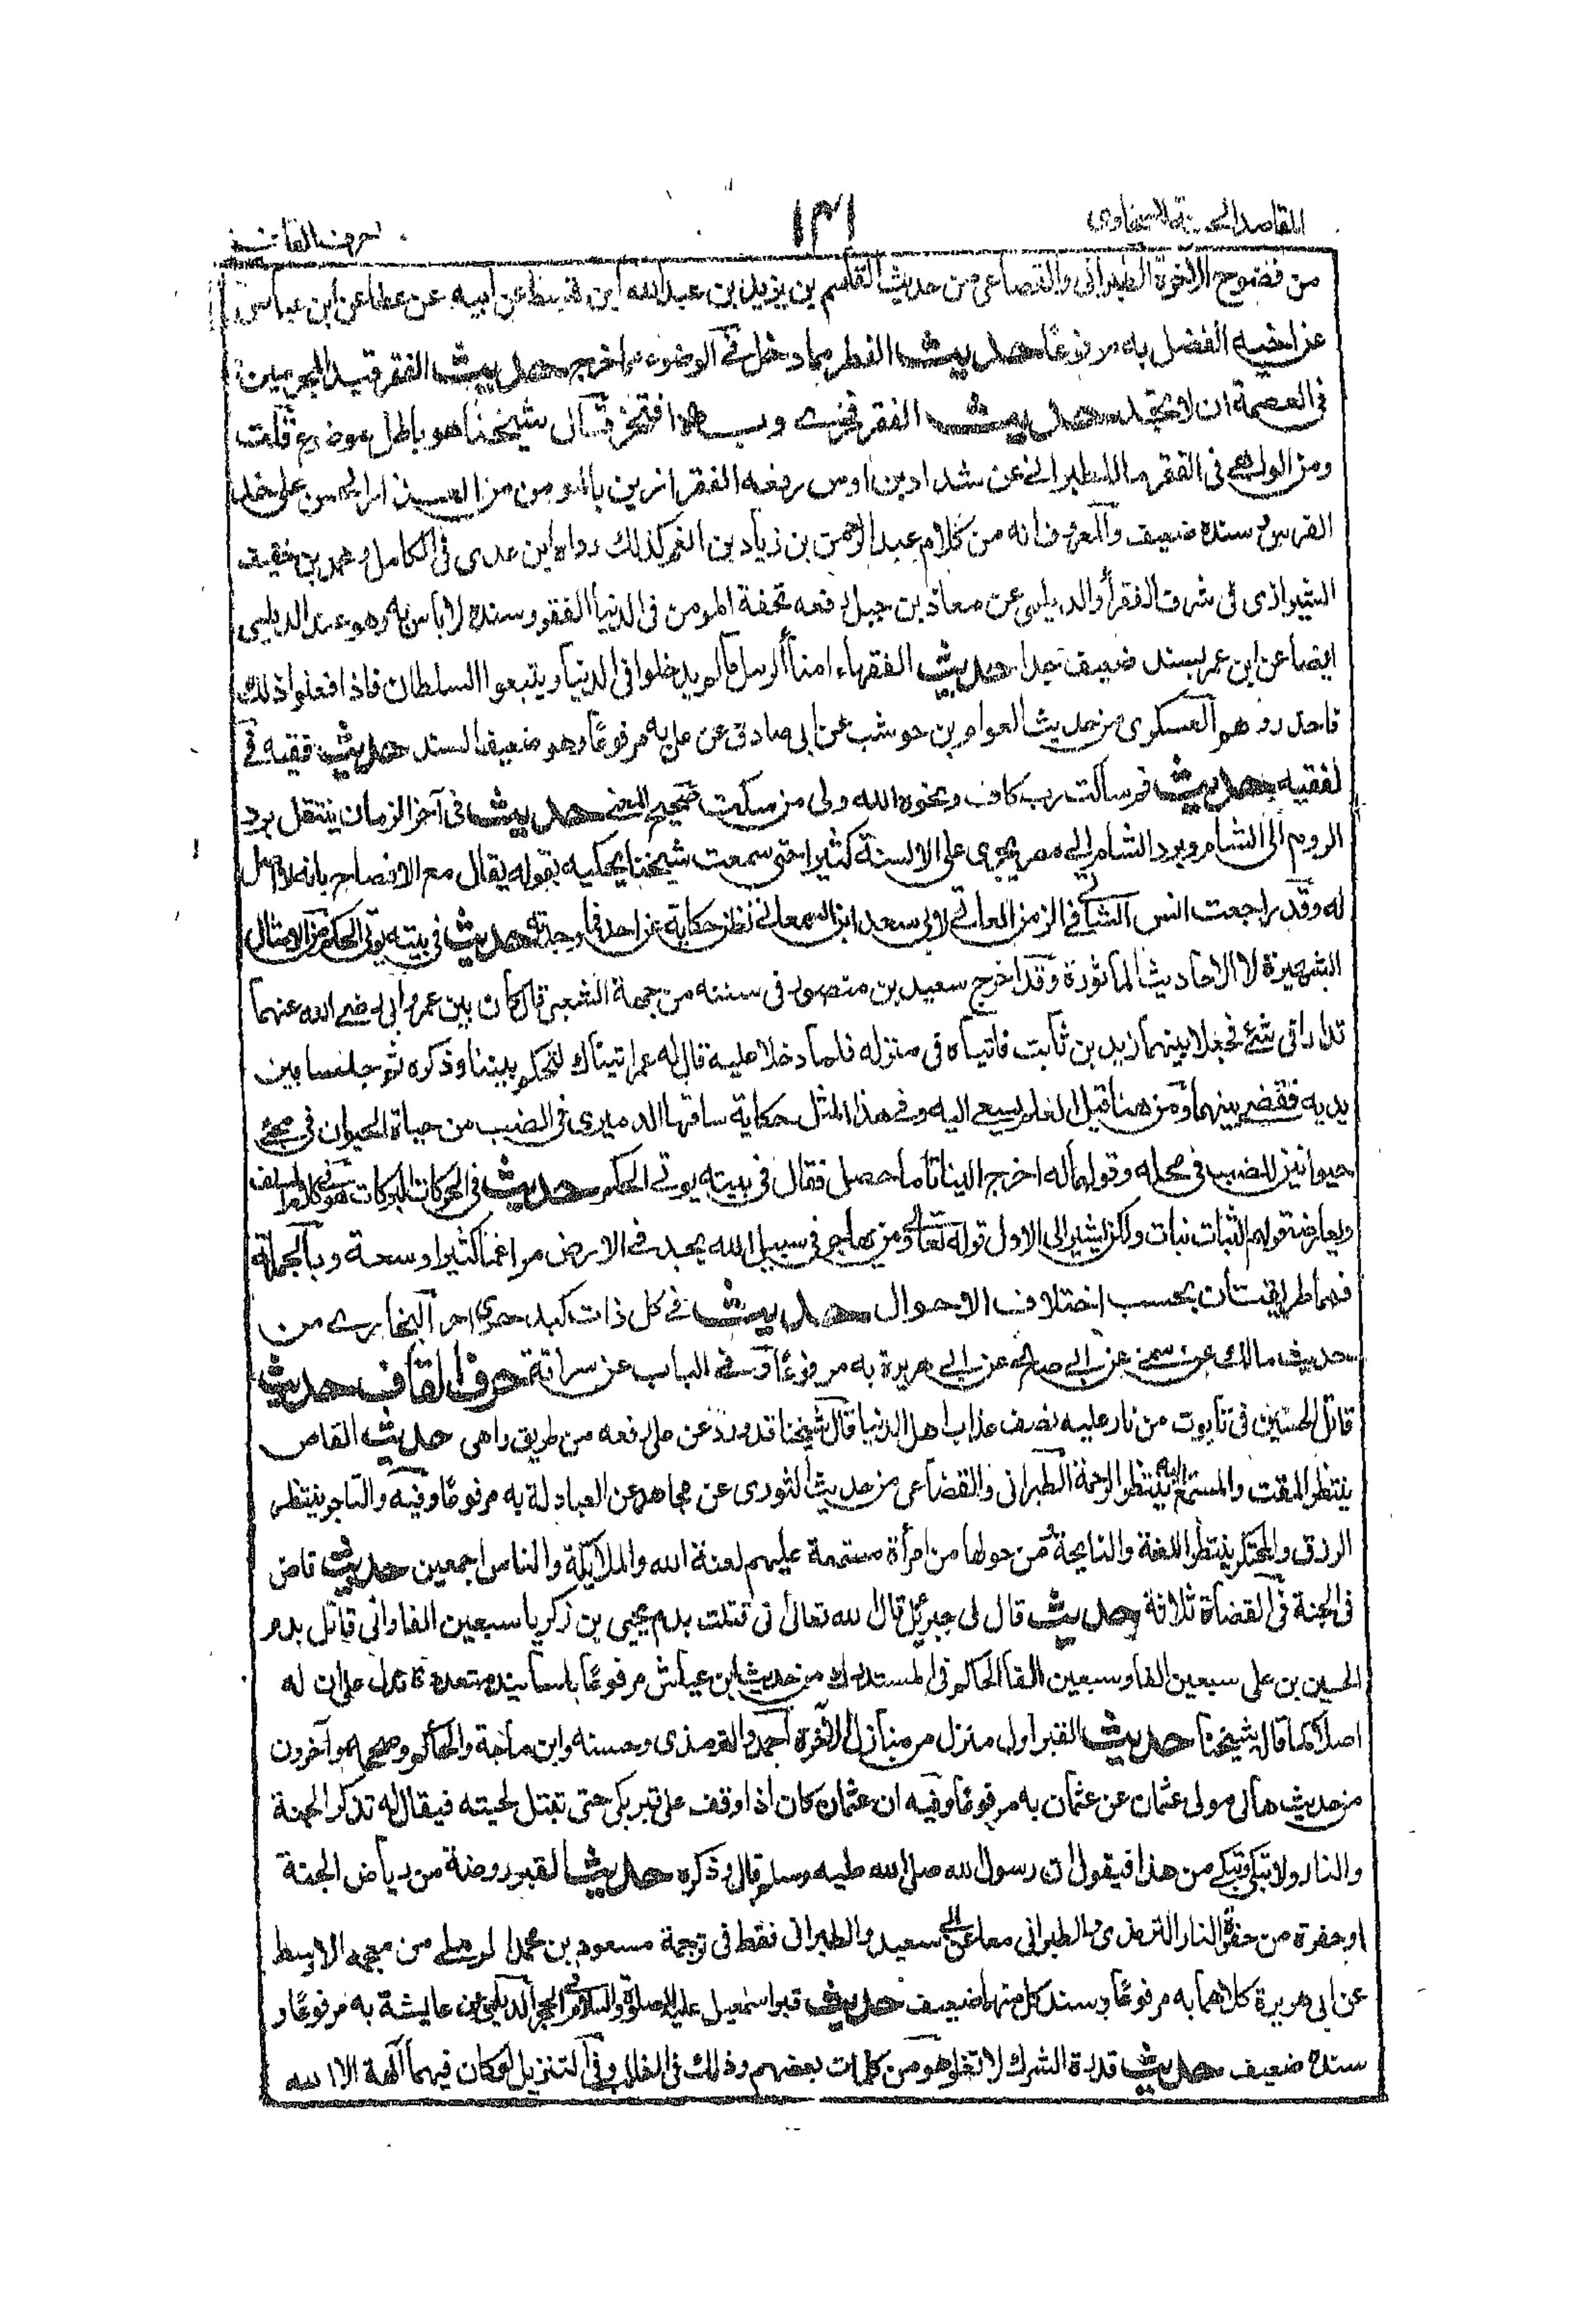 المقاصد الحسنة للسخاوى
١٣١
حرف القاف
من فضوح الاخرة الطبرانى والقضاعى من حديث القاسم بن يزيد بن عبدالله ابن قسيط عن ابيه عن عطا عن ابن عباس
عن اخيه الفضل به مرفوعًا حديث الفطر مما دخل والوضوء مما خرج حديث الفقر قيد المجرمين
فى العصمة ان لا تجد حديث الفقر فخرى وبه افتخر قال شيخنا هو باطل موضوع قلت
ومن الواهى فى الفقر ما للطبرانى عن شداد بن اوس رفعه الفقر ازين بالمومن من العذار الحسن على خد
الفرس وسنده ضعيف والمعروف انه من كلام عبد الرحمن بن زياد بن انعم كذلك رواه ابن عدى فى الكامل ومحمد بن خفيف
الشيرازى فى شرف الفقرأ والديلمى عن معاذ بن جبل رفعه تحفة المومن فى الدنيا الفقر وسنده لا باس به وهو عند الديلمى
ايضا عن ابن عمر بسند ضعيف جدا حديث الفقهاء امنأ الرسل مالم يدخلوا فى الدنيا ويتبعوا السلطان فاذا فعلوا ذلك
فاحذروهم العسكرى من حديث العوام بن حوشب عن ابى صادق عن على به مرفوعًا وهو ضعيف السند حديث فقيه فى
لفقيه حديث فم ساكت رب كاف ونحوه الله ولى من سكت صحيح المعنى حديث فى آخر الزمان ينتقل برد
الروم الى الشام وبرد الشام الى مصر يجرى على الالسنة كثيرا حتى سمعت شيخنا يحكيه بقوله يقال مع الافصاح بانه لا اصل
له وقد راجعت انس الشاتى فى الزمن العاتى لابى سعد ابن السمعانى نظن حكاية عن احد فما وجدته حديث فى بيته يوتى الحكم من الامثال
الشهيرة لا الاحاديث الماثورة وقد اخرج سعيد بن منصور فى سننه من جهة الشعبى قال كان بين عمر وابى رضى الله عنهما
تدارٍ فى شئ فجعلا بينهما زيد بن ثابت فاتياه فى منزله فلما دخلا عليه قال له عمر اتيناك لتحكم بيننا وذكره ثم جلسا بين
يديه فقضى بينهما ومن هنا قيل العلم يسعى اليه وفى هذا المثل حكاية ساقها الدميرى فى الضب من حياة الحيوان فى مجئ
حيوانين للضب فى محله وقولهما له اخرج الينا تاما حصل فقال فى بيته يوتى الحكم حديث فى الحركات البركات هو كلام السلف
ويعارضه قولهم الثبات نبات ولكن يشير الى الاول قوله تعالى ومن يهاجر فى سبيل الله يجد فى الارض مراغما كثيرا وسعة وبالجملة
فهما طريقتان بحسب اختلاف الاحوال حديث فى كل ذات كبد حرى اجر البخارى من
حديث مالك عن سمى عن ابى صالح عن ابى هريرة به مرفوعًا وفى الباب عن سراقة حرف القاف حديث
قاتل الحسين فى تابوت من نار عليه نصف عذاب اهل الدنيا قال شيخنا قد ورد عن على رفعه من طريق واهى حديث القاص
ينتظر المقت والمستمع اليه ينتظر الرحمة الطبرانى والقضاعى من حديث الثورى عن مجاهد عن العبادلة به مرفوعًا وفيه والتاجر ينتظر
الرزق والمحتكر ينتظر اللعنة والنايحة ومن حولها من امرأة مستمعة عليهم لعنة الله والملائكة والناس اجمعين حديث قاض
فى الجنة فى القضاة ثلاثة حديث قال لى جبرئيل قال الله تعالى انى قتلت بدم يحيى بن زكريا سبعين الفا وانى قاتل بدم
الحسين بن على سبعين الفا وسبعين الفا الحاكم فى المستدرك من حديث ابن عباس مرفوعًا باسانيد متعددة تدل على ان له
اصلا كما قال شيخنا حديث القبر اول منزل من منازل الآخرة احمد والترمذى وحسنه وابن ماجة والحاكم وصححه هو وآخرون
من حديث هانى مولى عثمان عن عثمان به مرفوعًا وفيه ان عثمان كان اذا وقف على قبر بكى حتى تبتل لحيته فيقال له تذكر الجنة
والنار ولا تبكى وتبكى من هذا فيقول ان رسول الله صلى الله عليه وسلم قال وذكره حديث القبر روضة من رياض الجنة
او حفرة من حفر النار الترمذى والطبرانى معا عن ابى سعيد والطبرانى فقط فى ترجمة مسعود بن محمد الرملى من معجمه الاوسط
عن ابى هريرة كلاهما به مرفوعًا وسند كل منهما ضعيف حديث قبر اسمعيل عليه الصلوة والسلام فى الحجر الديلمى عن عايشة به مرفوعًا و
سنده ضعيف حديث قدرة الشرك لا تغلو هو من كلمات بعضهم وذلك فى الغلاب وفى التنزيل لو كان فيهما آلهة الا الله